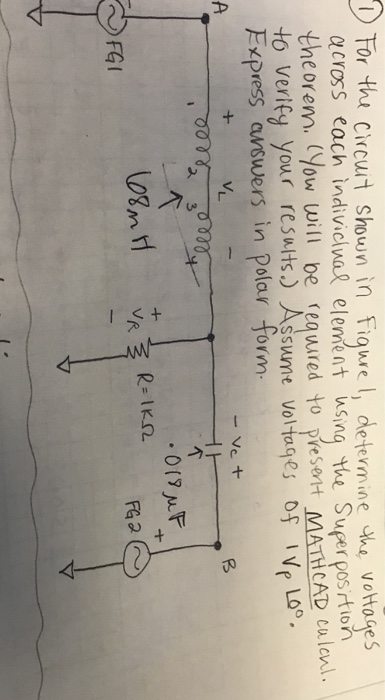 ① For the circuit shown in Figure 1, determine the voltages
across each individual element using the Superposition
theorem. (You will be required to present MATHCAD calcul.
to verify your results.) Assume voltages of 1Vp ∠0°.
Express answers in polar form.
A
+ VL -
- Vc +
B
1
2
3
4
68mH
.018µF
FG1
+
VR
-
R=1KΩ
+
FG2